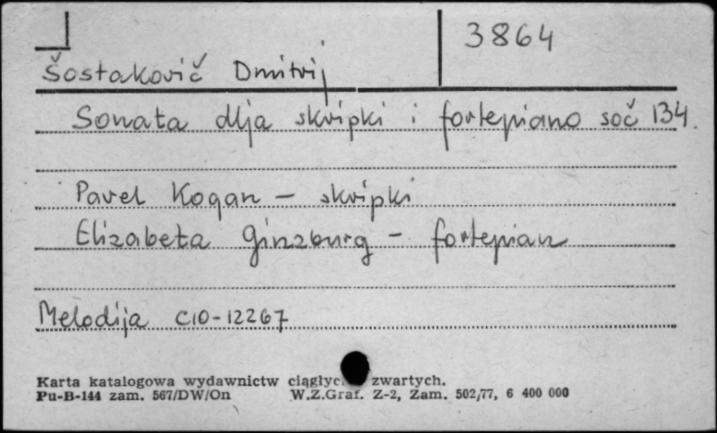 3864
Šostakovič Dmitrij
Sonata dlja skripki i fortepiano soč 134.
Pavel Kogan – skripki
Elizabeta Ginzburg – fortepian
Melodija C10-12267
Karta katalogowa wydawnictw zwartych.
Pu-B-144 zam. 567/DW/On W.Z.Graf. Z-2, Zam. 502/77, 6 400 000